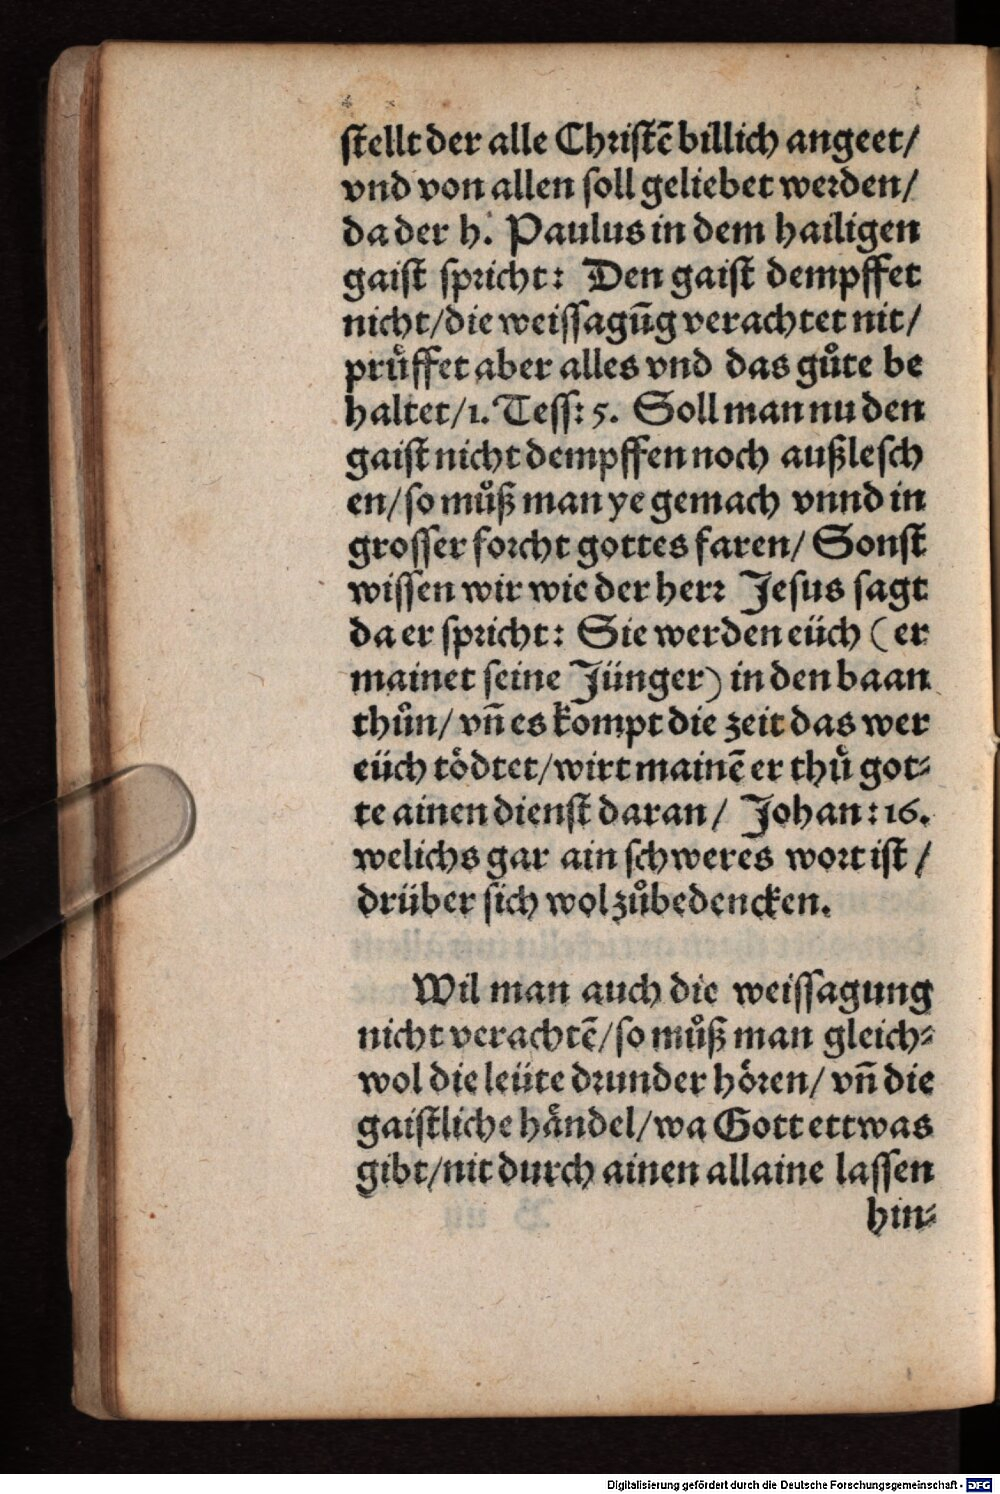 stellt der alle Christē billich angeet/
vnd von allen soll geliebet werden/
da der h. Paulus in dem hailigen
gaist spricht: Den gaist dempffet
nicht/die weissagūg verachtet nit/
pruͤffet aber alles vnd das guͦte be
haltet/1. Tess: 5. Soll man nu den
gaist nicht dempffen noch außlesch
en/so muͦß man ye gemach vnnd in
grosser forcht gottes faren/ Sonst
wissen wir wie der herr Jesus sagt
da er spricht: Sie werden eüch (er
mainet seine Jünger) in den baan
thuͦn/ vn̄ es kompt die zeit das wer
eüch toͤdtet/wirt mainē er thuͤ got⸗
te ainen dienst daran/ Johan: 16.
welichs gar ain schweres wort ist/
drüber sich wol zuͦbedencken.
Wil man auch die weissagung
nicht verachtē/so muͦß man gleich⸗
wol die leüte drunder hoͤren/ vn̄ die
gaistliche haͤndel/wa Gott ettwas
gibt/nit durch ainen allaine lassen
hin⸗
Digitalisierung gefördert durch die Deutsche Forschungsgemeinschaft - DFG